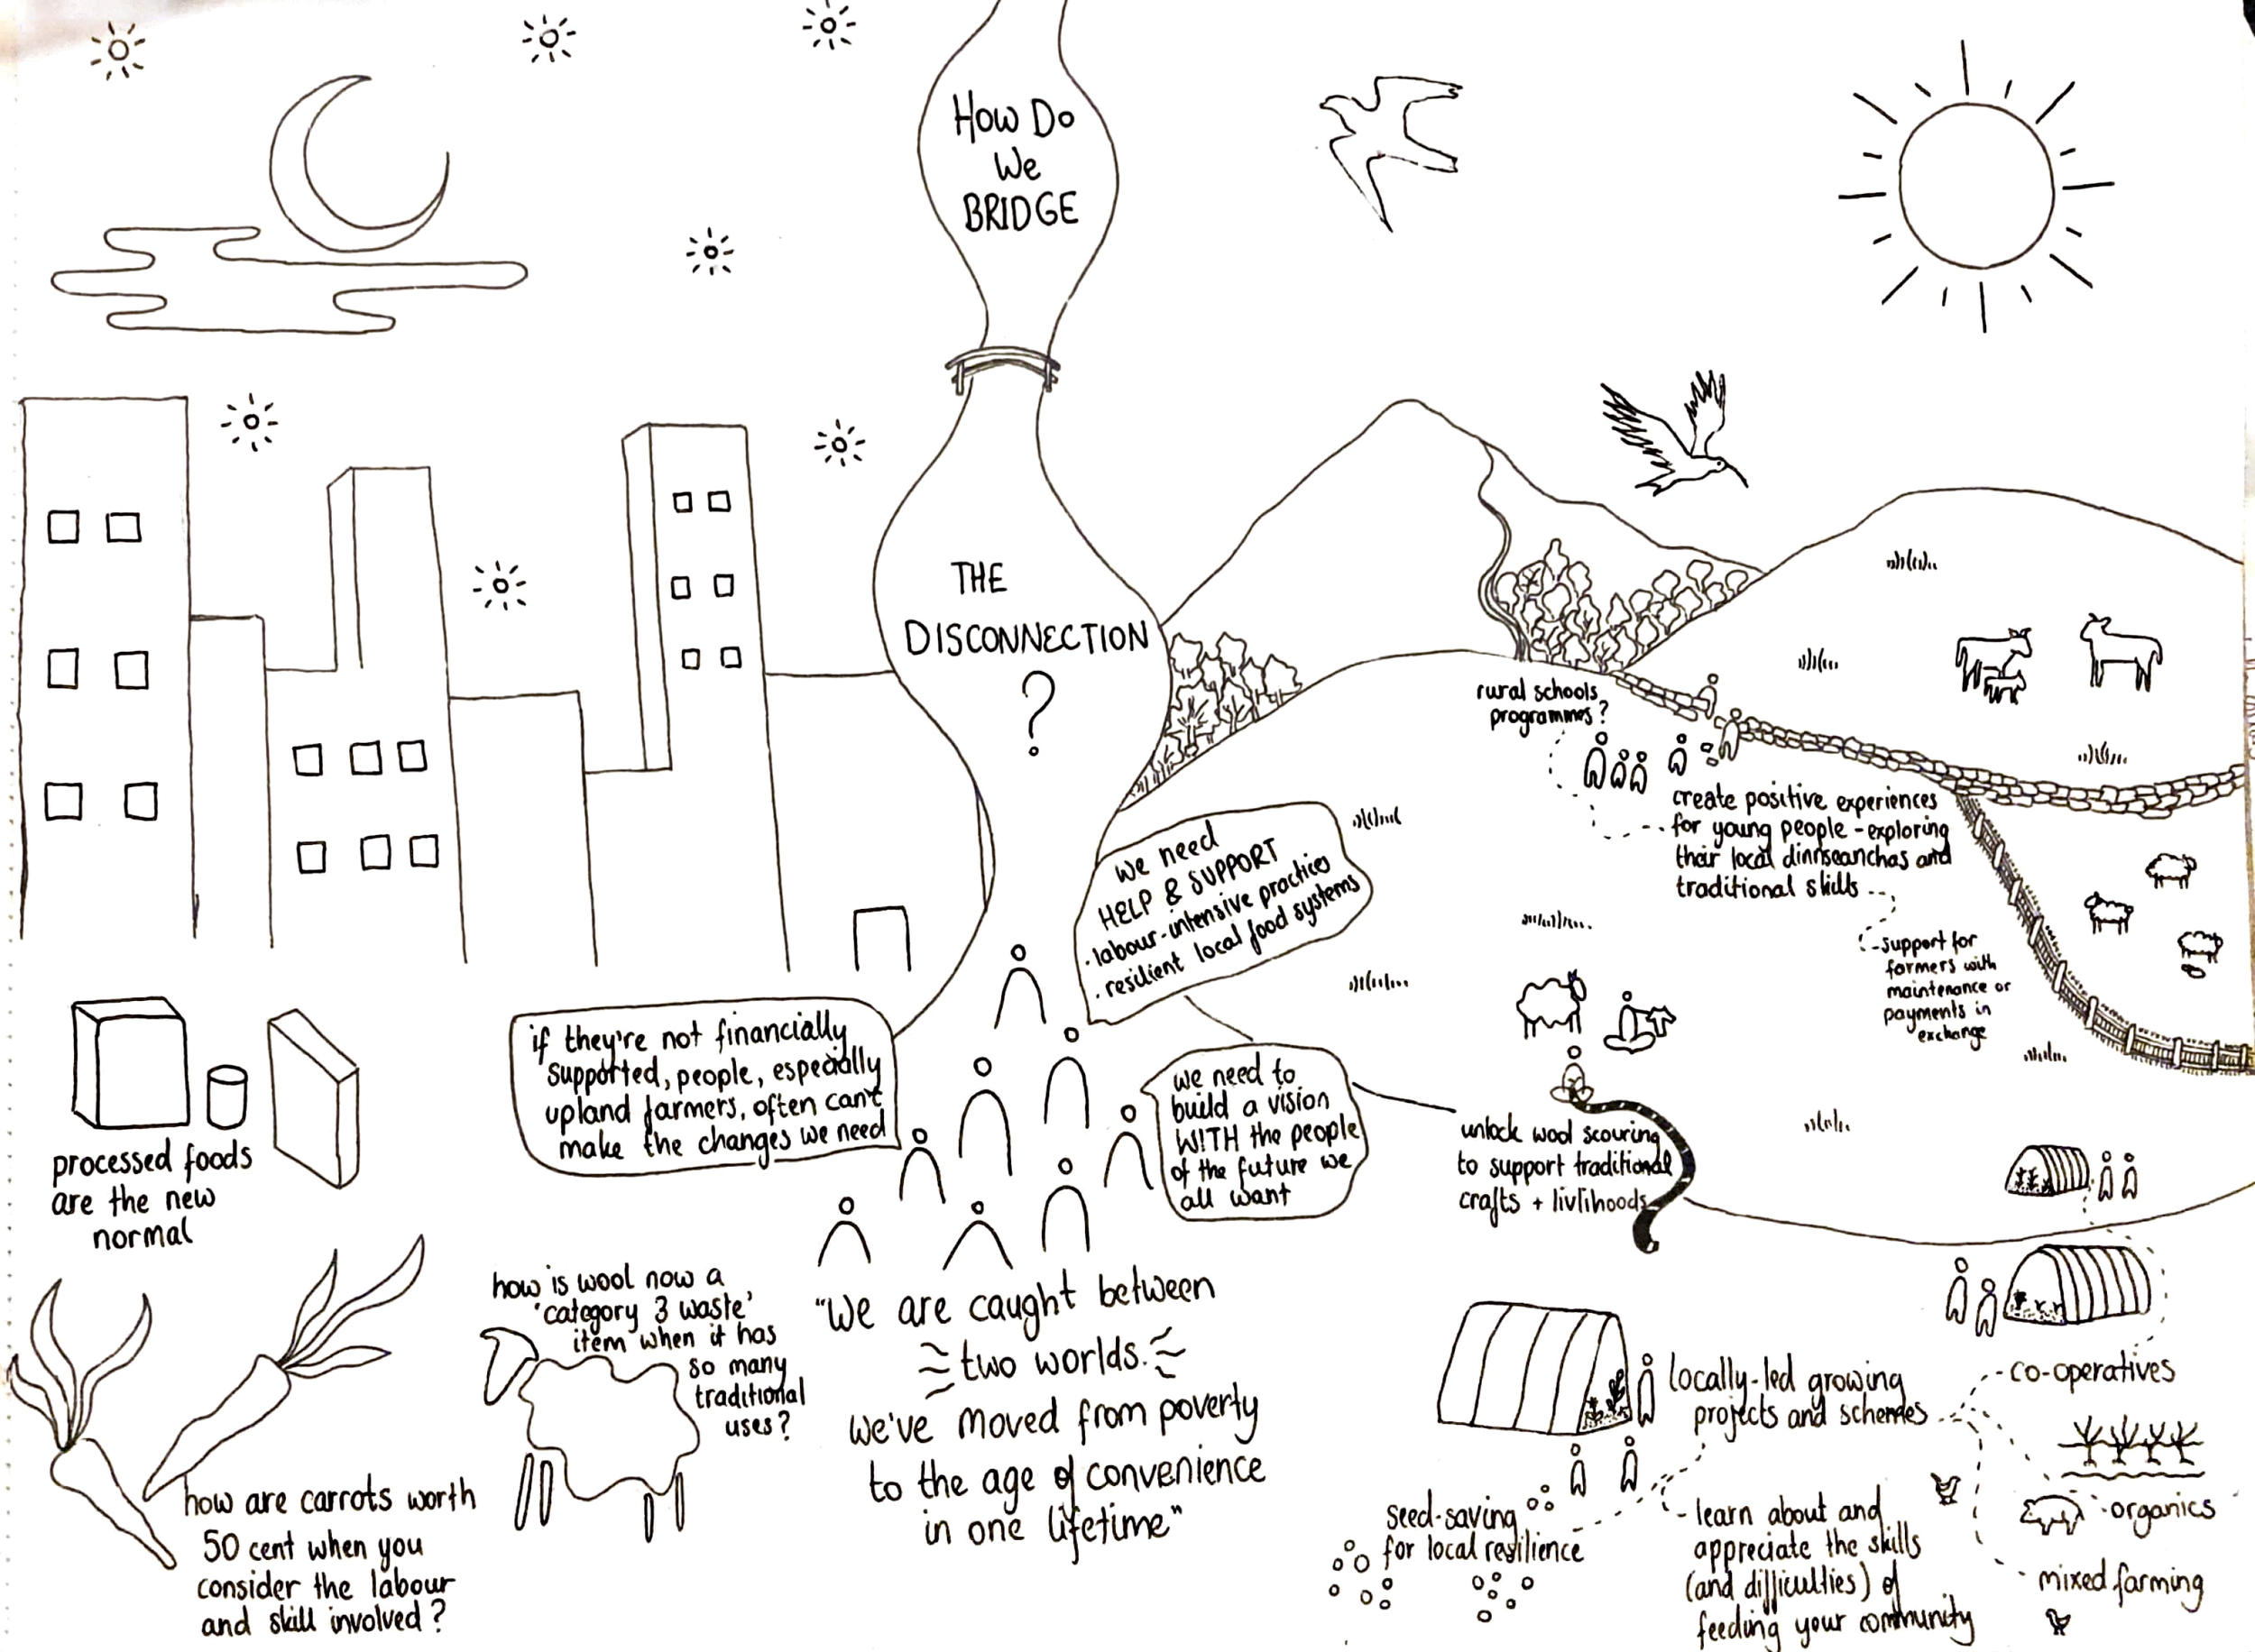 How Do
We
BRIDGE
THE
DISCONNECTION
?
we need
HELP & SUPPORT
· labour-intensive practices
· resilient local food systems
if they're not financially
supported, people, especially
upland farmers, often can't
make the changes we need
we need to
build a vision
WITH the people
of the future we
all want
"We are caught between
two worlds.
we've moved from poverty
to the age of convenience
in one lifetime"
processed foods
are the new
normal
how are carrots worth
50 cent when you
consider the labour
and skill involved?
how is wool now a
'category 3 waste'
item when it has
so many
traditional
uses?
rural schools
programmes?
create positive experiences
for young people - exploring
their local dinnseanchas and
traditional skills
support for
farmers with
maintenance or
payments in
exchange
unlock wool scouring
to support traditional
crafts + livlihoods
locally-led growing
projects and schemes
co-operatives
organics
mixed farming
seed-saving
for local resilience
learn about and
appreciate the skills
(and difficulties) of
feeding your community